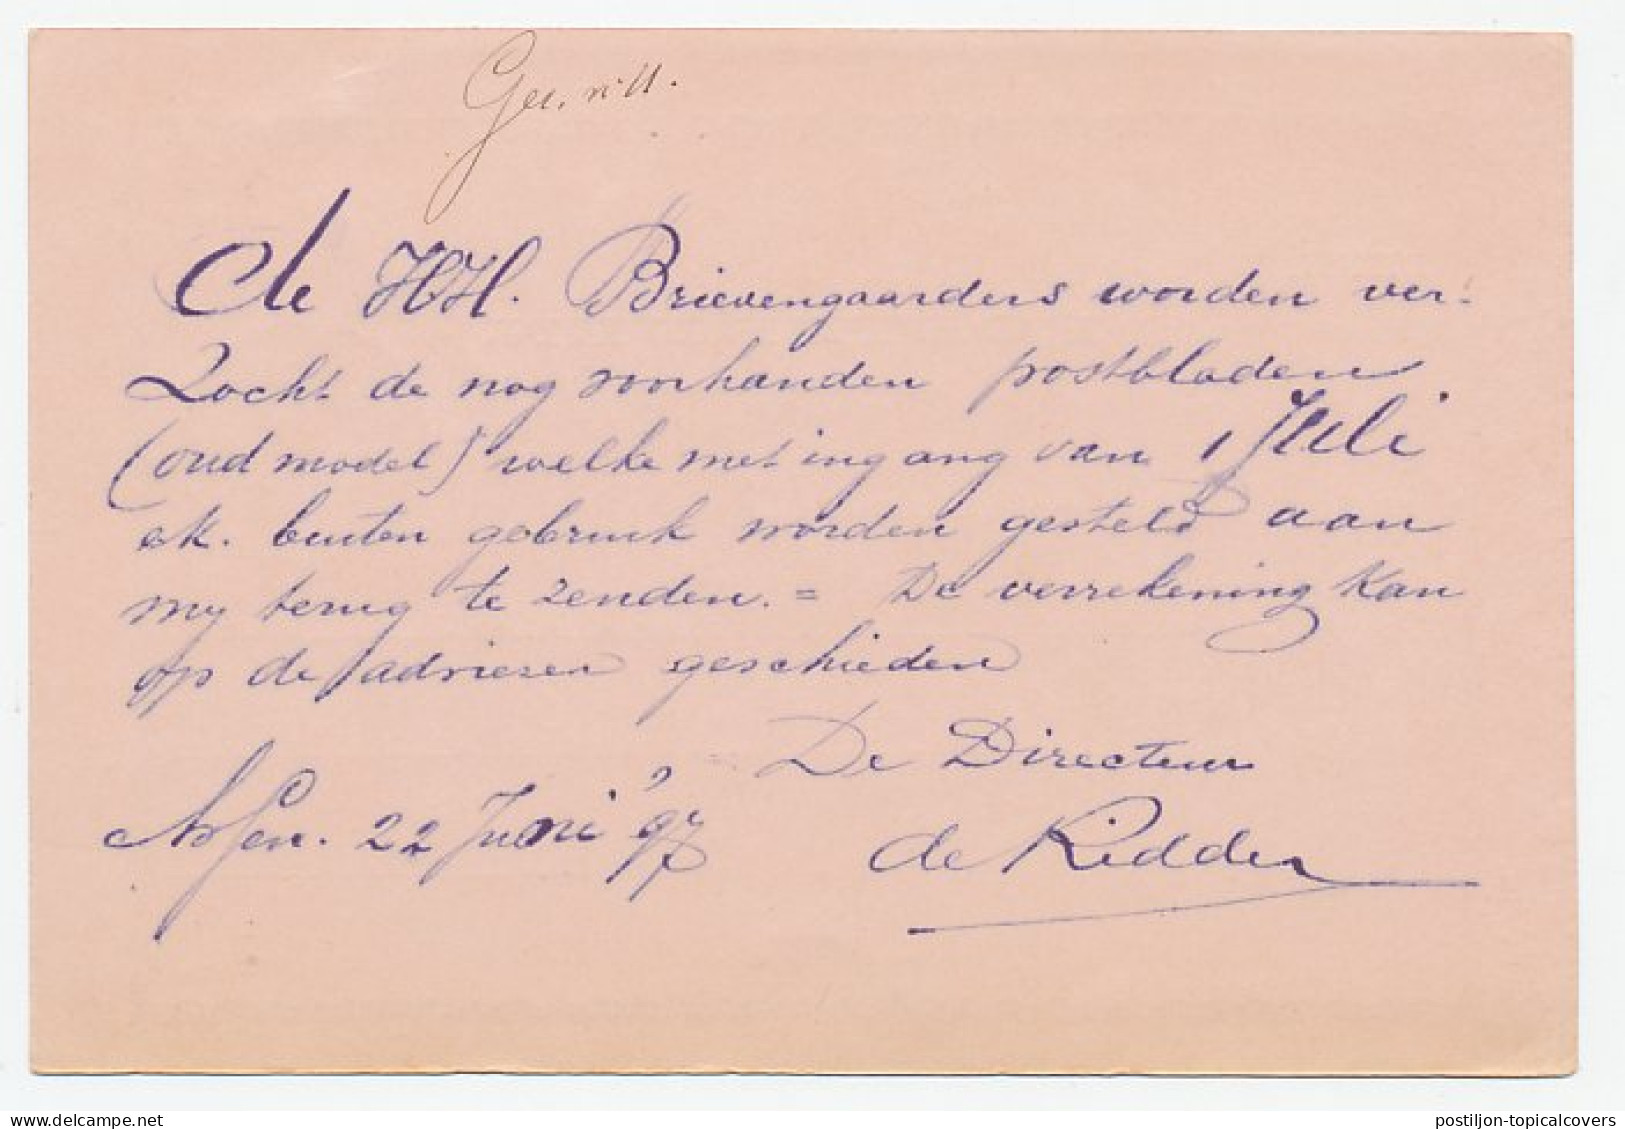 Ges. nihil.
De HH. Brievengaarders worden ver-
zocht de nog voorhanden postbladen
(oud model) welke met ingang van 1 Juli
ak. buiten gebruik worden gesteld aan
my terug te zenden. = De verrekening kan
op de adviezen geschieden
De Directeur
Assen. 22 Juni '97
de Ridder
postiljon-topicalcovers
delcampe.net